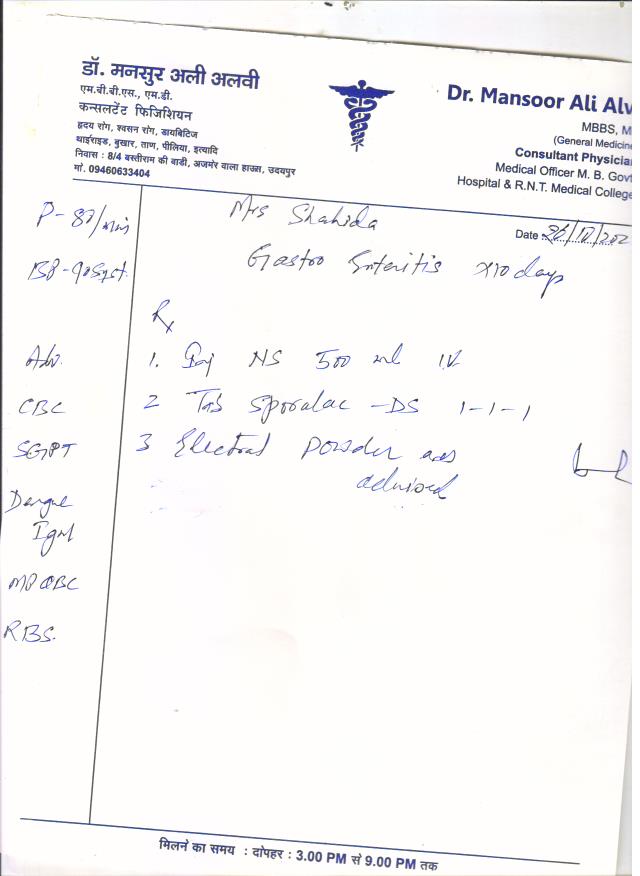 डॉ. मनसुर अली अलवी
एम.बी.बी.एस., एम.डी.
कन्सलटेंट फिजिशियन
हृदय रोग, श्वसन रोग, डायबिटिज
थाईराइड, बुखार, ताण, पीलिया, इत्यादि
निवास : 8/4 बस्तीराम की बाडी, अजमंर वाला हाउस, उदयपुर
मां. 09460633404
Dr. Mansoor Ali Alv
MBBS, M
(General Medicine
Consultant Physician
Medical Officer M. B. Govt
Hospital & R.N.T. Medical College
Mrs Shahida
Date 26/IV/202
P-82/min
BP-90syst.
Gastro Enteritis x10 days
Rx
Adv.
1. Inj NS 500 ml IV
CBC
2 Tab Sporalac -DS 1-1-1
SGPT
3 Electral Powder as
advised
Dengue
IgM
MP QBC
RBS.
मिलने का समय : दोपहर : 3.00 PM से 9.00 PM तक